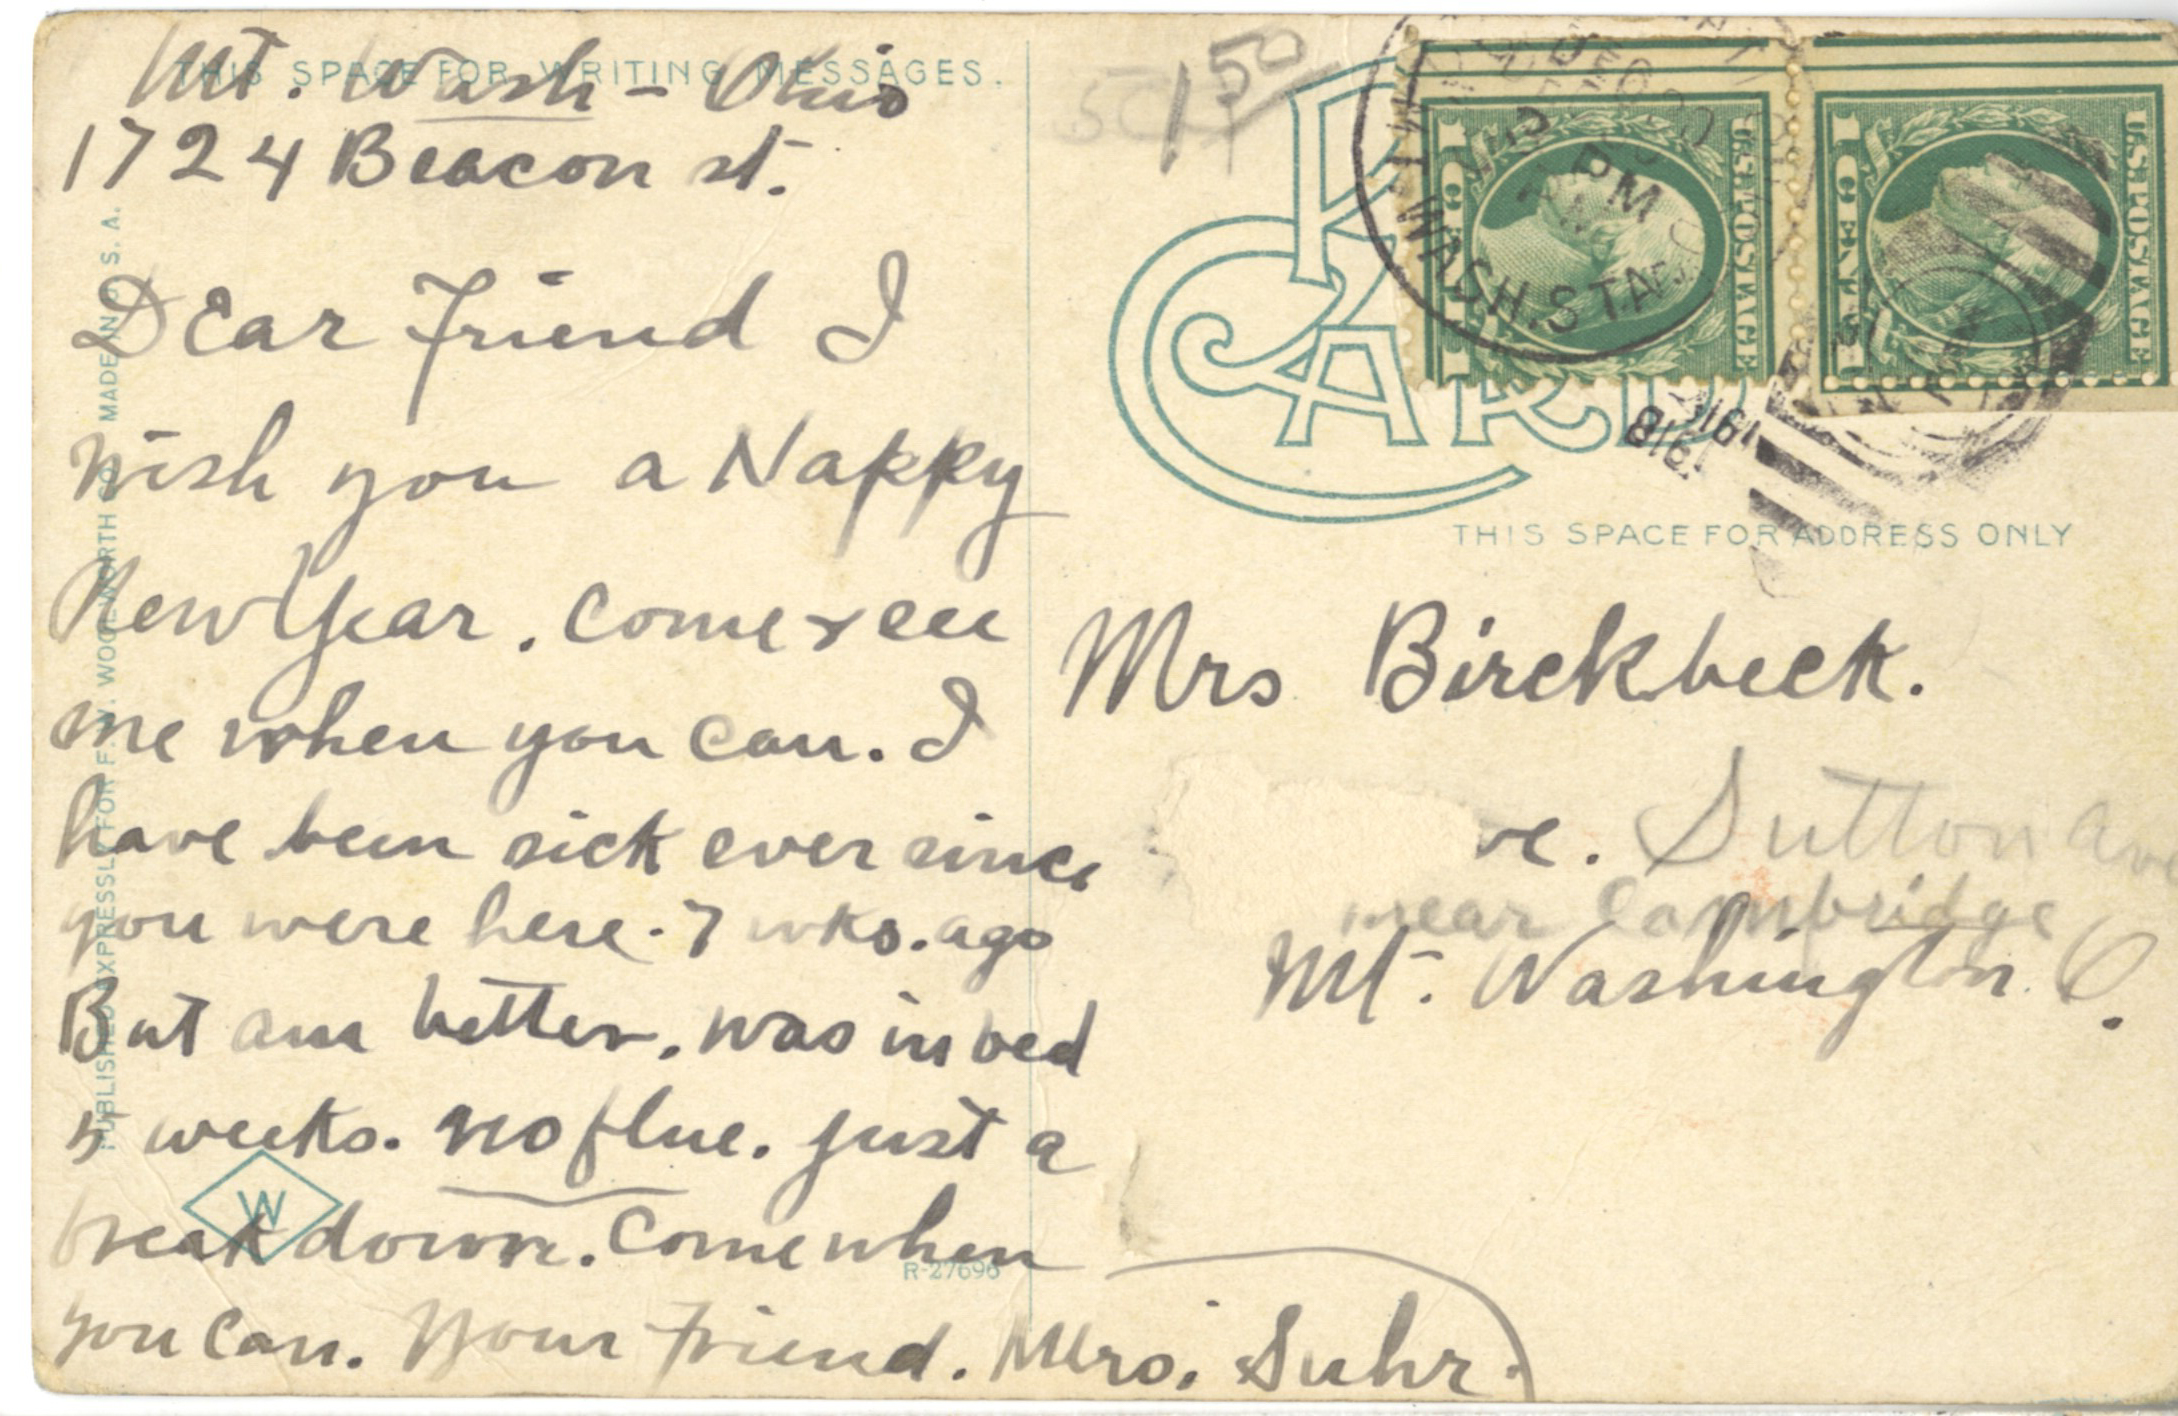 THIS SPACE FOR WRITING MESSAGES.
Mt. Wash - Ohio
1724 Beacon st.
Dear Friend I
Wish you a Happy
New Year. Come & see
me when you can. I
have been sick ever since
you were here. 7 wks. ago
But am better. was in bed
5 weeks. no flue. just a
break down. Come when
you can. Your Friend. Mrs. Suhr.
PUBLISHED EXPRESSLY FOR F. W. WOOLWORTH CO. MADE IN U. S. A.
W
R-27696
1 50
POST CARD
DEC 30
PM
MT. WASH. STA.
1918
1 CENT 1
U.S. POSTAGE
1 CENT 1
U.S. POSTAGE
THIS SPACE FOR ADDRESS ONLY
Mrs Birckbeck.
ve. Sutton Ave
near Cambridge
Mt. Washington. O.